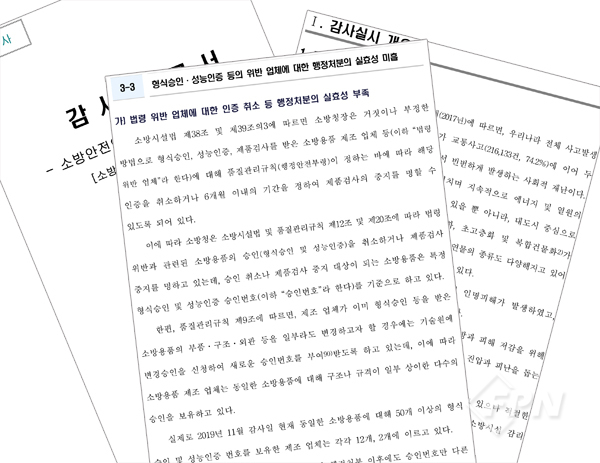 사
감사
서
- 소방안전
[소방
3-3 형식승인·성능인증 등의 위반 업체에 대한 행정처분의 실효성 미흡
가) 법령 위반 업체에 대한 인증 취소 등 행정처분의 실효성 부족
소방시설법 제38조 및 제39조의3에 따르면 소방청장은 거짓이나 부정한
방법으로 형식승인, 성능인증, 제품검사를 받은 소방용품 제조 업체 등(이하 "법령
위반 업체"라 한다)에 대해 품질관리규칙(행정안전부령)이 정하는 바에 따라 해당
인증을 취소하거나 6개월 이내의 기간을 정하여 제품검사의 중지를 명할 수
있도록 되어 있다.
이에 따라 소방청은 소방시설법 및 품질관리규칙 제12조 및 제20조에 따라 법령
위반과 관련된 소방용품의 승인(형식승인 및 성능인증)을 취소하거나 제품검사
중지를 명하고 있는데, 승인 취소나 제품검사 중지 대상이 되는 소방용품은 특정
형식승인 및 성능인증 승인번호(이하 "승인번호"라 한다)를 기준으로 하고 있다.
한편, 품질관리규칙 제9조에 따르면, 제조 업체가 이미 형식승인 등을 받은
소방용품의 부품·구조·외관 등을 일부라도 변경하고자 할 경우에는 기술원에
변경승인을 신청하여 새로운 승인번호를 부여90)받도록 하고 있는데, 이에 따라
소방용품 제조 업체는 동일한 소방용품에 대해 구조나 규격이 일부 상이한 다수의
승인을 보유하고 있다.
실제로 2019년 11월 감사일 현재 동일한 소방용품에 대해 50개 이상의 형식
승인 및 성능인증 번호를 보유한 제조 업체는 각각 12개, 2개에 이르고 있다.
이후에도 승인번호만 다른
I. 감사실시 개요
(2017년)에 따르면, 우리나라 전체 사고발생
가 교통사고(216,133건, 74.2%)에 이어 두
서 빈번하게 발생하는 사회적 재난이다.
치며 지속적으로 에너지 및 열원의
있을 뿐 아니라, 대도시 중심으로
, 초고층화 및 복합건물화2)가
연물의 종류도 다양해지고 있어
있다.
, 인명피해가 발생하였고,
과 피해 저감을 위해
진압과 피난을 돕는
있으나 적절한
소방시설 감리
FPN